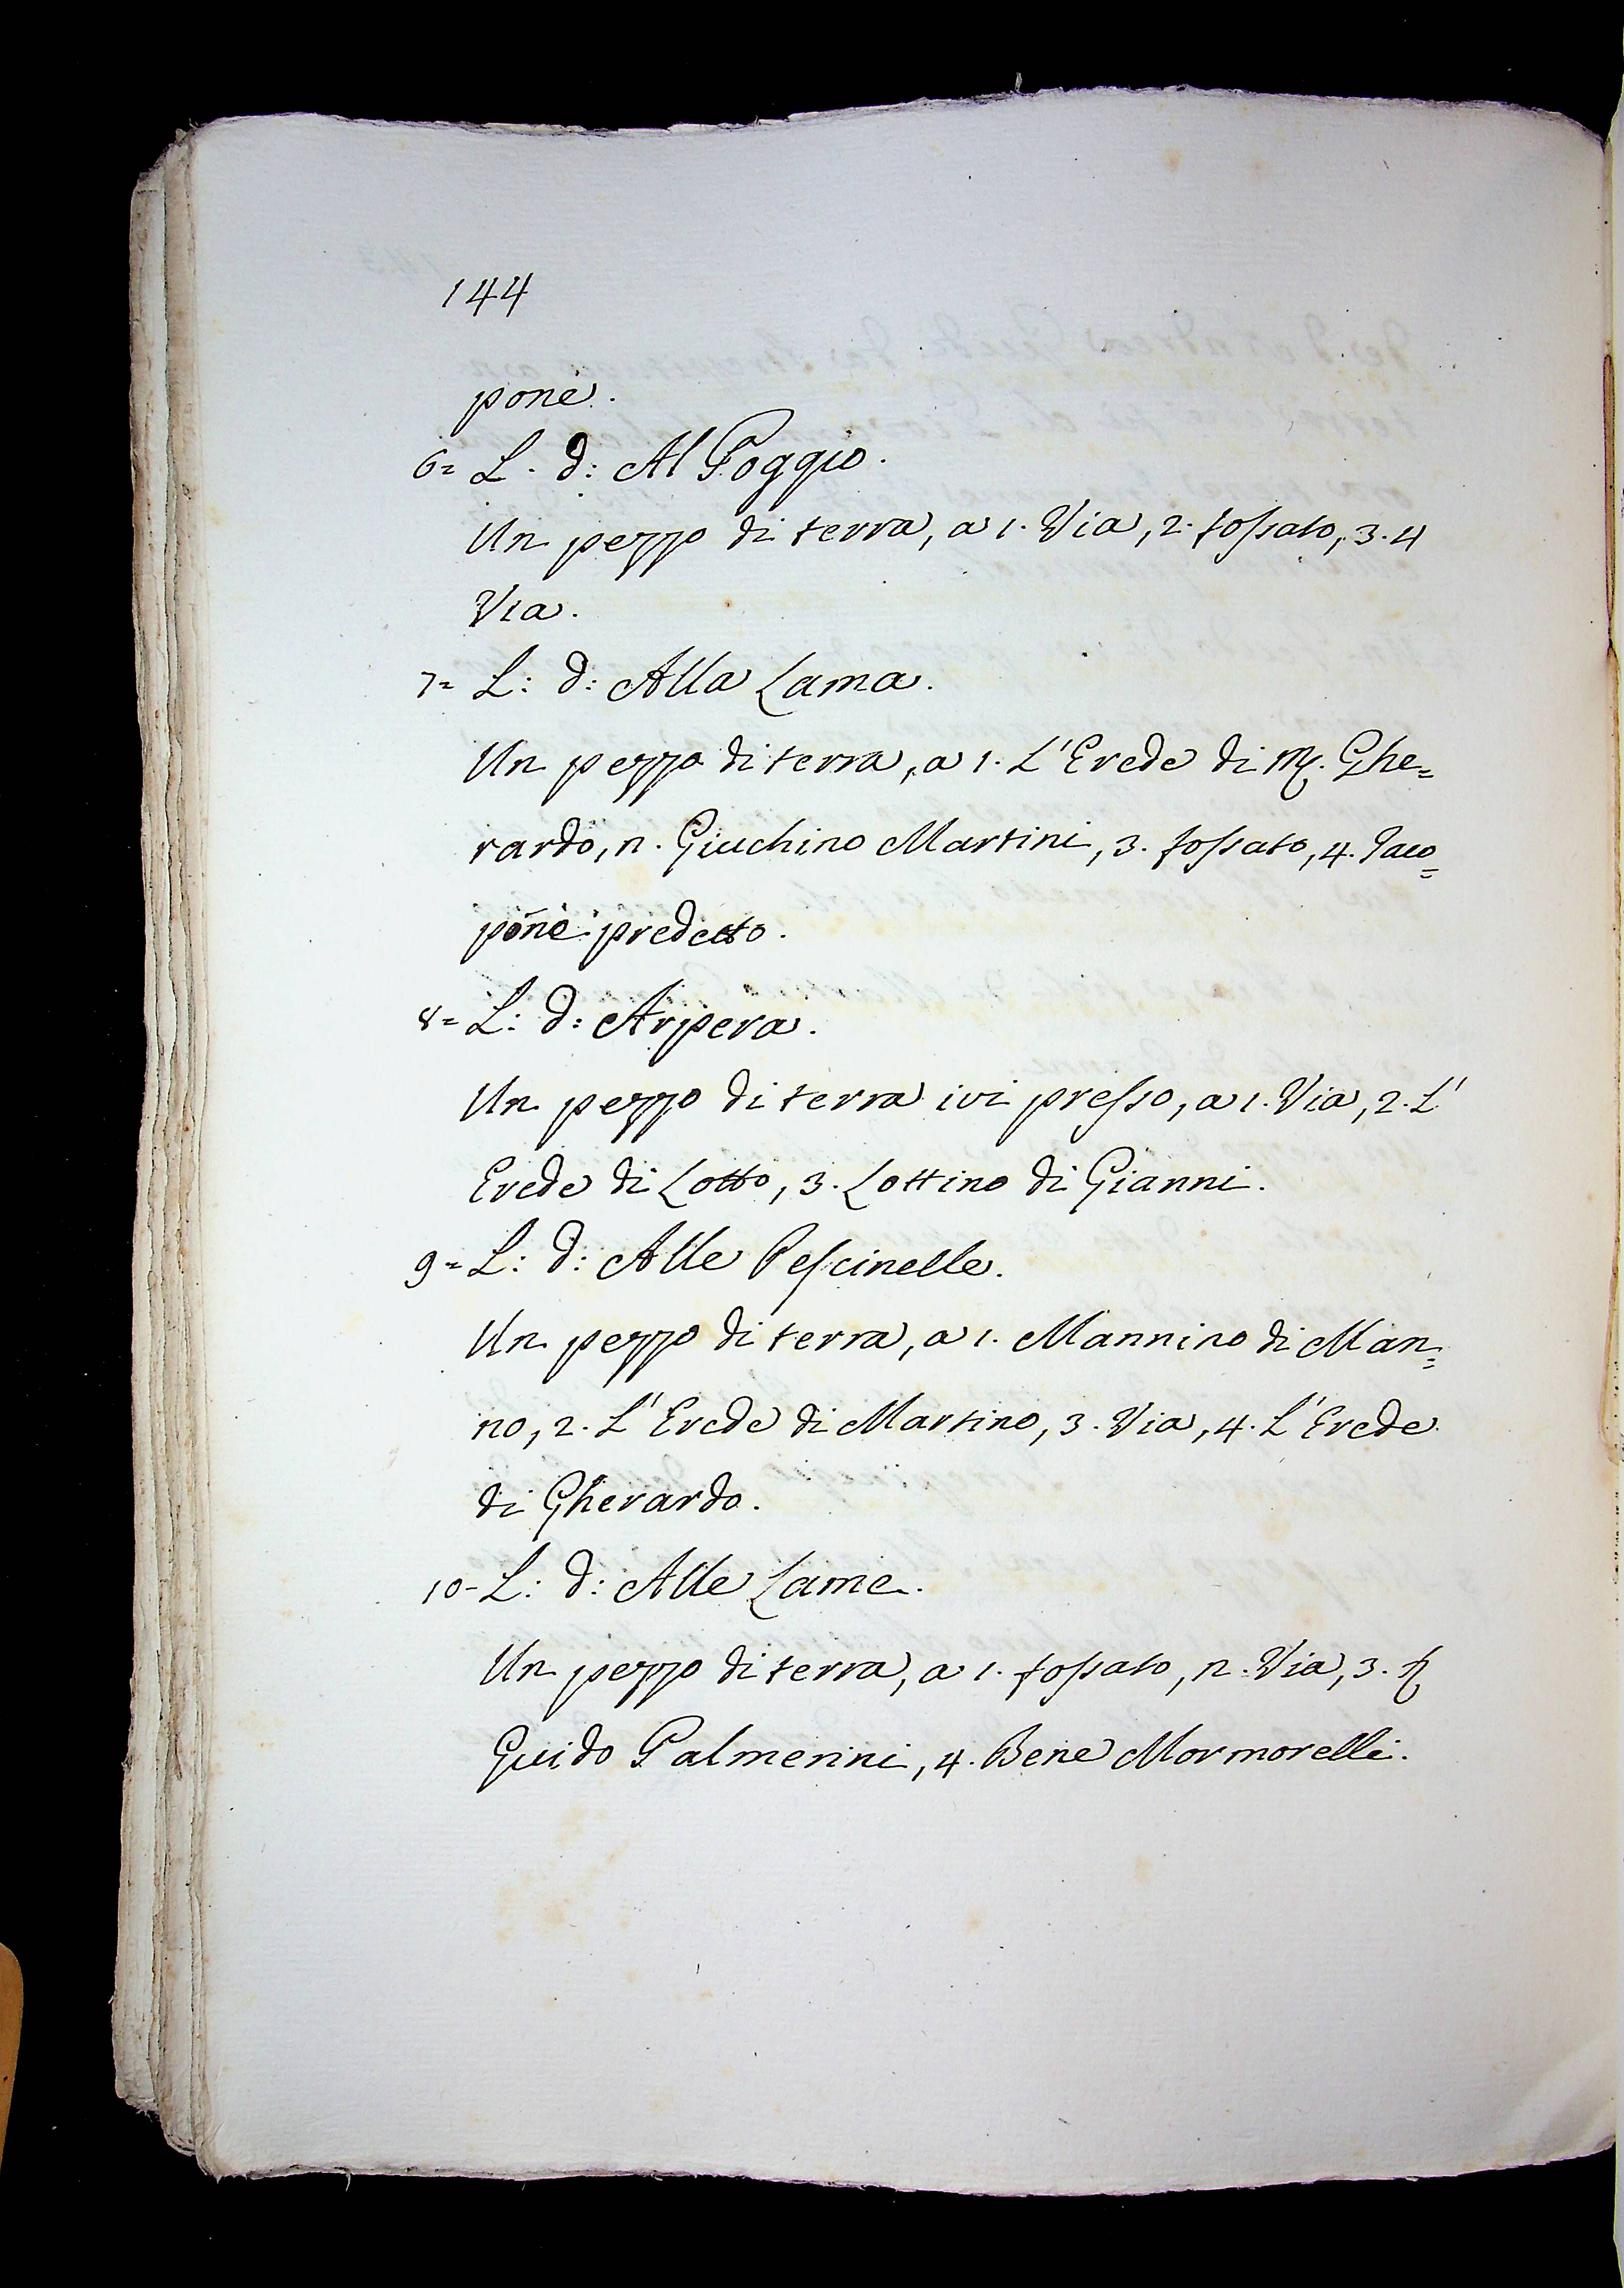 144
pone.
6= L. d: Al Poggio.
Un pezzo di terra, a 1. Via, 2. fossato, 3. 4
Via.
7= L: d: Alla Lama.
Un pezzo di terra, a 1. L'Erede di Mſ. Ghe=
rardo, n. Giuchino Martini, 3. fossato, 4. Jaco=
pone predetto.
8= L: d: Arpera.
Un pezzo di terra ivi presso, a 1. Via, 2. L'
Erede di Lotto, 3. Lottino di Gianni.
9= L: d: Alle Pescinelle.
Un pezzo di terra, a 1. Mannino di Man=
no, 2. L'Erede di Martino, 3. Via, 4. L'Erede
di Gherardo.
10- L: d: Alle Lame.
Un pezzo di terra, a 1. fossato, n. Via, 3.
Guido Palmerini, 4. Bene Mormorelli.